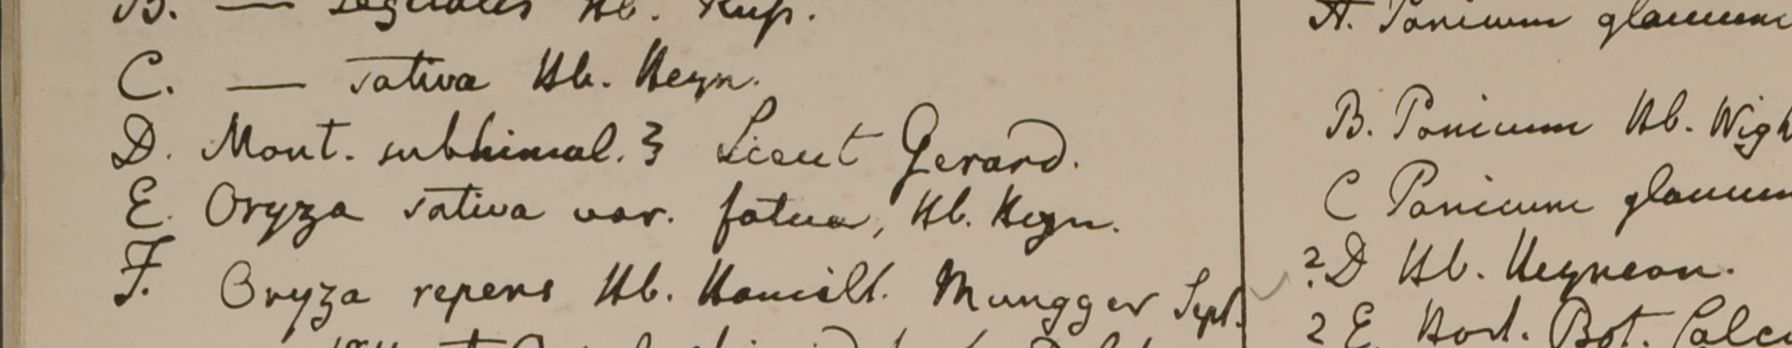 B. — segetalis Hb. Rup.
C. — sativa Hb. Heyn.
D. Mont. subhimal. Lieut Gerard.
E. Oryza sativa var. fatua, Hb. Heyn.
F. Oryza repens Hb. Hamilt. Mungger Sept.
A. Panicum glaucum
B. Panicum Hb. Wigh
C Panicum glaucum
?D Hb. Heynean.
? E. Hort. Bot. Calc